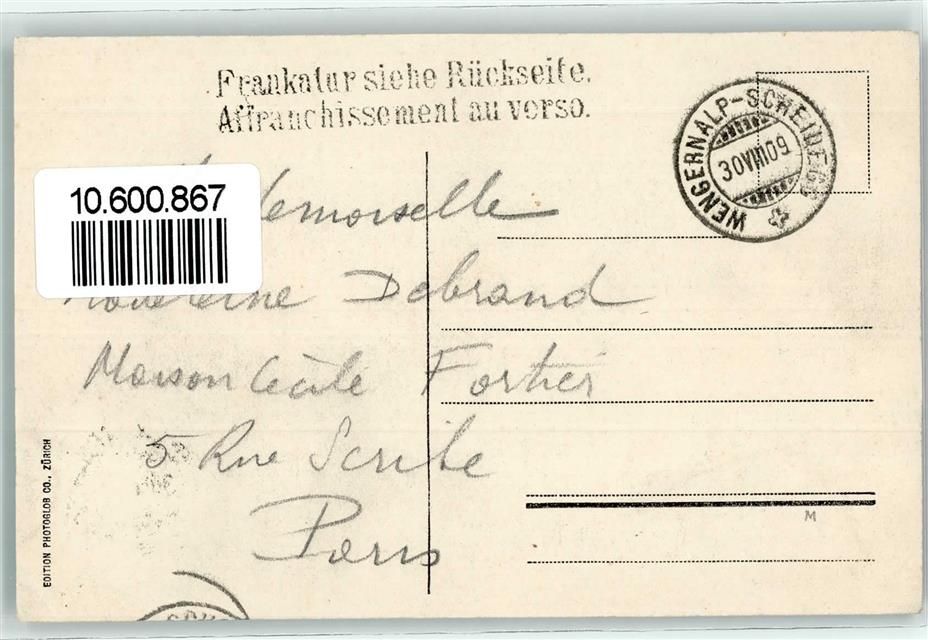 Frankatur siehe Rückseite.
Affranchissement au verso.
WENGERNALP-SCHEIDEGG
30VIII09
10.600.867
demoiselle
Debrand
Maison Cécile Fortier
5 Rue Scribe
Paris
EDITION PHOTOGLOB CO., ZÜRICH
M